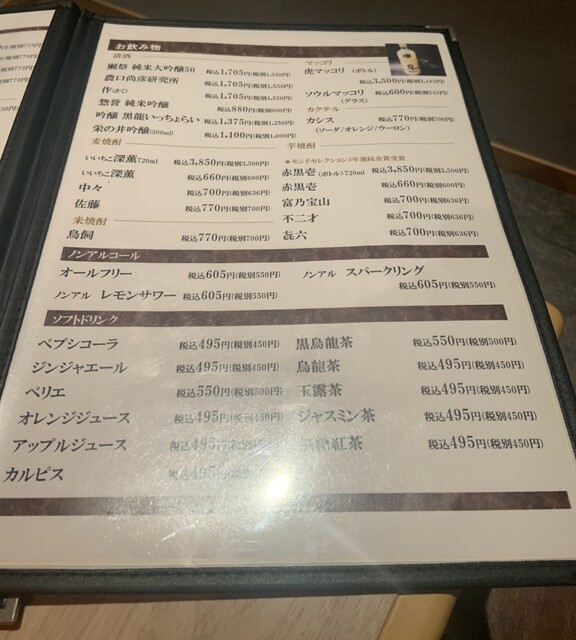 お飲み物
清酒
獺祭 純米大吟醸50 税込1,705円(税別1,550円)
農口尚彦研究所 税込1,705円(税別1,550円)
作(ざく) 税込1,705円(税別1,550円)
惣誉 純米吟醸 税込880円(税別800円)
吟醸 黒龍いっちょらい 税込1,375円(税別1,250円)
栄の井吟醸(300ml) 税込1,100円(税別1,000円)
麦焼酎
いいちこ深薫720ml 税込3,850円(税別3,500円)
いいちこ深薫 税込660円(税別600円)
中々 税込700円(税別636円)
佐藤 税込770円(税別700円)
米焼酎
鳥飼 税込770円(税別700円)
マッコリ
虎マッコリ (ボトル)
税込3,500円(税別3,182円)
ソウルマッコリ 税込600円(税別545円)
(グラス)
カクテル
カシス 税込770円(税別700円)
(ソーダ/オレンジ/ウーロン)
芋焼酎
★モンドセレクション3年連続金賞受賞
赤黒壱 (ボトル)720ml 税込3,850円(税別3,500円)
赤黒壱 税込660円(税別600円)
富乃宝山 税込700円(税別636円)
不二才 税込700円(税別636円)
㐂六 税込700円(税別636円)
ノンアルコール
オールフリー 税込605円(税別550円)
ノンアル レモンサワー 税込605円(税別550円)
ノンアル スパークリング
税込605円(税別550円)
ソフトドリンク
ペプシコーラ 税込495円(税別450円)
ジンジャエール 税込495円(税別450円)
ペリエ 税込550円(税別500円)
オレンジジュース 税込495円(税別450円)
アップルジュース 税込495円(税別450円)
カルピス 税込495円
黒烏龍茶 税込550円(税別500円)
烏龍茶 税込495円(税別450円)
玉露茶 税込495円(税別450円)
ジャスミン茶 税込495円(税別450円)
紅茶 税込495円(税別450円)